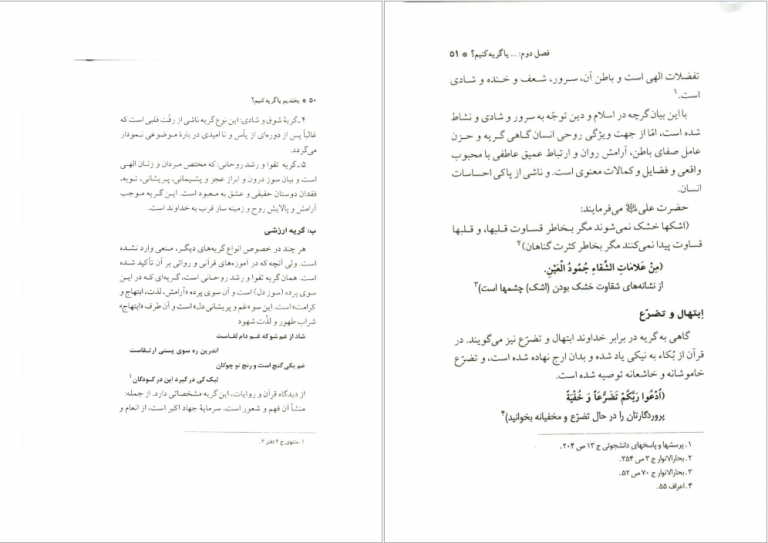 ۵۰ * بخندیم یا گریه کنیم؟
۴ـ گریهٔ شوق و شادی: این نوع گریه ناشی از رقّت قلبی است که
غالباً پس از دوره‌ای از یأس و ناامیدی در بارهٔ موضوعی نمودار
می‌گردد.
۵ـ گریه تقوا و رشد روحانی: که مختص مردان و زنان الهی
است و بیان سوز درون و ابراز عجز و پشیمانی، پریشانی، توبه،
فقدان دوستان حقیقی و عشق به معبود است. این گریه موجب
آرامش و پالایش روح و زمینه ساز قرب به خداوند است.
ب: گریه ارزشی
هر چند در خصوص انواع گریه‌های دیگر، منعی وارد نشده
است. ولی آنچه که در آموزه‌های قرآنی و روائی بر آن تأکید شده
است. همان گریه تقوا و رشد روحانی است، گریه‌ای که در این
سوی پرده (سوز دل) است و آن سوی پرده «آرامش، لذت، ابتهاج و
کرامت» است. این سو «غم و پریشانی دل» است و آن طرف «ابتهاج»
شراب طهور و لذّت شهود
شاد از غم شو که غم دام لقاست
اندرین ره سوی پستی ارتقاست
غم یکی گنج است و رنج تو چوکان
لیک کی در گیرد این در کودکان ۱
از دیدگاه قرآن و روایات، این گریه مشخصاتی دارد. از جمله:
منشأ آن فهم و شعور است، سرمایهٔ جهاد اکبر است، از انعام و
۱. مثنوی ج ۲ دفتر ۳.
فصل دوم: ... یا گریه کنیم؟ * ۵۱
تفضلات الهی است و باطن آن، سرور، شعف و خنده و شادی
است.۱
با این بیان گرچه در اسلام و دین توجّه به سرور و شادی و نشاط
شده است، امّا از جهت ویژگی روحی انسان گاهی گریه و حزن
عامل صفای باطن، آرامش روان و ارتباط عمیق عاطفی با محبوب
واقعی و فضایل و کمالات معنوی است. و ناشی از پاکی احساسات
انسان.
حضرت علی می‌فرمایند:
(اشکها خشک نمی‌شوند مگر بخاطر قساوت قلبها، و قلبها
قساوت پیدا نمی‌کنند مگر بخاطر کثرت گناهان)۲
(مِنْ عَلامَاتِ الشَّقاءِ جُمُودُ الْعَیْنِ.
از نشانه‌های شقاوت خشک بودن (اشک) چشمها است)۳
اِبتهال و تضرّع
گاهی به گریه در برابر خداوند ابتهال و تضرّع نیز می‌گویند. در
قرآن از بُکاء به نیکی یاد شده و بدان ارج نهاده شده است، و تضرّع
خاموشانه و خاشعانه توصیه شده است.
(اُدْعُوا رَبَّکُمْ تَضَرُّعاً وَ خُفْیَةً
پروردگارتان را در حال تضرّع و مخفیانه بخوانید)۴
۱. پرسشها و پاسخهای دانشجوئی ج ۱۳ ص ۲۰۴.
۲. بحارالانوار ج ۳ ص ۳۵۴.
۳. بحارالانوار ج ۷۰ ص ۵۲.
۴. اعراف ۵۵.